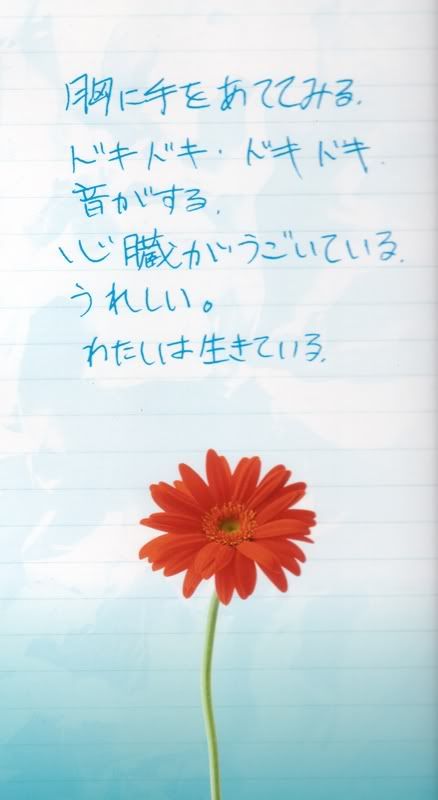 胸に手をあててみる.
ドキドキ・ドキドキ.
音がする.
心臓がうごいている.
うれしい。
わたしは生きている.